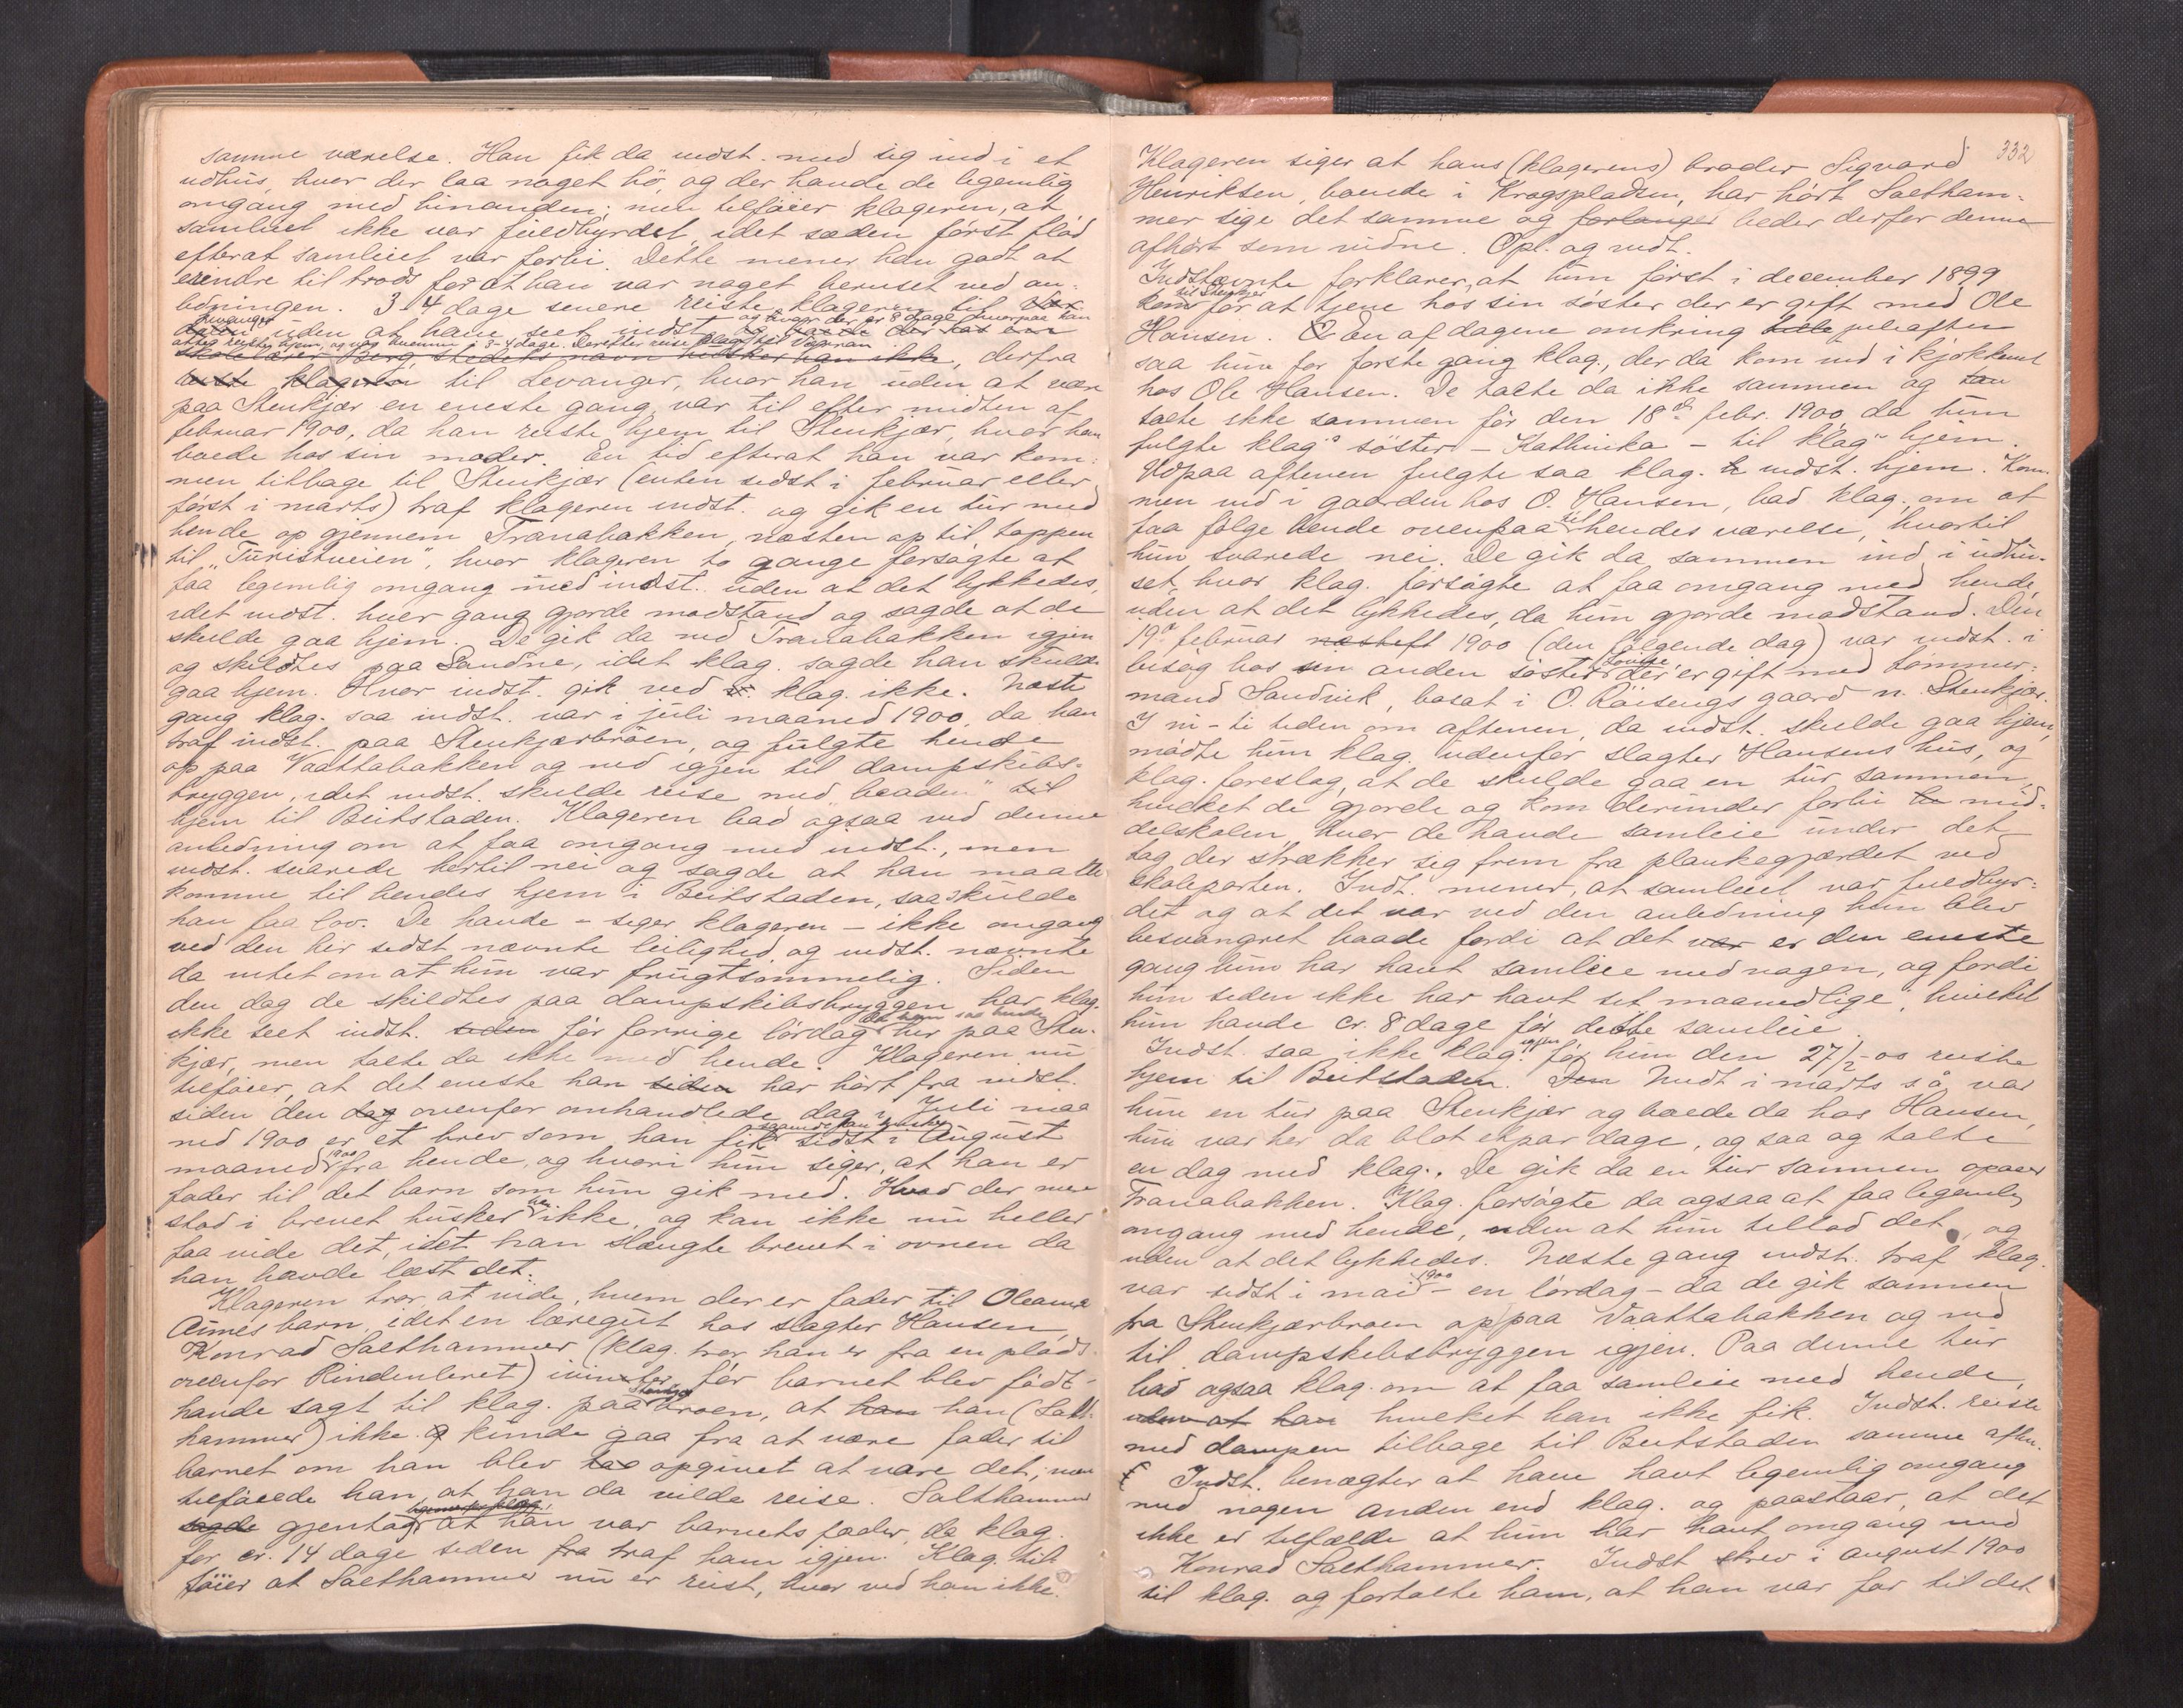 samme værelse. Han fik da indst. med sig ind i et
udhus, hvor der laa noget hö, og der havde de legemlig
omgang med hinanden; men tilföier klageren, at
samleiet ikke var fuldbyrdet, idet sæden först flöd
efterat samleiet var forbi. Dette mener han godt at
erindre til trods for at han var noget beruset ved an-
ledningen. 3-4 dage senere reiste klageren til
Levanger uden at have seet indst. og var der ca 8 dage, hvorpaa han
atter reiste hjem, og var hjemme i 3-4 dage. Derefter reiste klag. til Værran
skolelærer Berg, stedets navn husker han ikke, derfra
reiste klageren til Levanger, hvor han uden at være
paa Stenkjær en eneste gang, var til efter midten af
februar 1900, da han reiste hjem til Stenkjær, hvor han
boede hos sin moder. En tid efterat han var kom-
men tilbage til Stenkjær (enten sidst i februar eller
först i marts) traf klageren indst. og gik en tur med
hende op gjennem Tranabakken, næsten op til toppen
til "Turistveien", hvor klageren to gange forsögte at
faa legemlig omgang med indst. uden at det lykkedes,
idet indst. hver gang gjorde modstand og sagde at de
skulde gaa hjem. De gik da ned Tranabakken igjen
og skildtes paa Sandne, idet klag. sagde han skulde
gaa hjem. Hvor indst. gik ved klag. ikke. Næste
gang klag. saa indst. var i juli maaned 1900, da han
traf indst. paa Stenkjærbroen, og fulgte hende
op paa Vaattabakken og ned igjen til dampskibs-
bryggen, idet indst. skulde reise med "baaden" til
hjem til Beitstaden. Klageren bad ogsaa ved denne
anledning om at faa omgang med indst., men
indst. svarede hertil nei og sagde at han maatte
komme til hendes hjem i Beitstaden, saa skulde
han faa lov. De havde - siger klageren - ikke omgang
ved den her sidst nævnte leilighed og indst. nævnte
da intet om at hun var frugtsommelig. Siden
den dag de skildtes paa dampskibsbryggen har klag.
ikke seet indst. siden för forrige lördag da han saa hende her paa Sten-
kjær, men talte da ikke med hende. Klageren nu
tilföier, at det eneste han siden har hört fra indst.
siden den dag ovenfor omhandlede dag i Juli maa
ned 1900 er et brev som han fik saavidt han husker sidst i August
maaned 1900 fra hende, og hvori hun siger, at han er
fader til det barn som hun gik med. Hvad der mere
stod i brevet husker ikke, og kan ikke nu heller
faa vide det, idet han slængte brevet i ovnen da
han havde læst det.
Klageren tror at vide, hvem der er fader til Oleana
Aunes barn, idet en læregut hos slagter Hansen,
Konrad Salthammer (klag. tror han er fra en plads
ovenfor Rindenleret) för barnet blev födt -
havde sagt til klag. paa Stenkjærbroen, at han han (Salt-
hammer) ikke kunde gaa fra at være fader til
barnet om han blev opgivet at være det; men
tilföiede han, at han da vilde reise. Salthammer
sagde gjentog at han var barnets fader, da klag.
for cr. 14 dage siden traf ham igjen. Klag. til-
föier at Salthammer nu er reist, hvor ved han ikke.
332
Klageren siger at hans (klagerens) broder Sigvard
Henriksen, boende i Krogspladsen, har hört Saltham-
mer sige det samme og forlanger beder derfor denne
afhört som vidne. Opl. og vedt.
Indstævnte forklarer, at hun först i december 1899
kom til Stenkjær for at tjene hos sin söster der er gift med Ole
Hansen. En af dagene omkring juleaften
saa hun for förste gang klag., der da kom ind i kjökkenet
hos Ole Hansen. De talte da ikke sammen og
talte ikke sammen för den 18de febr. 1900, da hun
fulgte klag's söster - Kathinka - til klag's hjem.
Udpaa aftenen fulgte saa klag. indst. hjem. Kom-
men ind i gaarden hos O. Hansen, bad klag. om at
faa fölge hende ovenpaa til hendes værelse, hvortil
hun svarede nei. De gik da sammen ind i udhu-
set, hvor klag. forsögte at faa omgang med hende,
uden at det lykkedes, da hun gjorde modstand. Den
19de februar næsteft 1900 (den fölgende dag) var indst. i
besög hos sin anden söster Lovise der er gift med tömmer-
mand Sandvik, bosat i O. Röisengs gaard n. Stenkjær.
I ni-ti tiden om aftenen, da indst. skulde gaa hjem,
mödte hun klag. udenfor slagter Hansens hus, og
klag. foreslog, at de skulde gaa en tur sammen,
hvilket de gjorde og kom derunder forbi mid-
delskolen, hvor de havde samleie under det
tag der strækker sig frem fra plankegjærdet ved
skoleporten. Indst. mener, at samleiet var fuldbyr-
det og at det var ved den anledning hun blev
besvangret baade fordi at det var er den eneste
gang hun har havt samleie med nogen, og fordi
hun siden ikke har havt sit maanedlige, hvilket
hun havde cr. 8 dage för dette samleie.
Indst. saa ikke klag. igjen för hun den 27/2-00 reiste
hjem til Beitstaden. Midt i marts s.å. var
hun en tur paa Stenkjær og boede da hos Hansen,
hun var her da blot et par dage, og saa og talte
en dag med klag. De gik da en tur sammen opover
Tranabakken. Klag. forsögte da ogsaa at faa legemlig
omgang med hende, uden at hun tillod det, og
uden at det lykkedes. Næste gang indst. traf klag.
var sidst i mai 1900 - en lördag - da de gik sammen
fra Stenkjærbroen op paa Vaattabakken og ned
til dampskibsbryggen igjen. Paa denne tur
bad ogsaa klag. om at faa samleie med hende,
uden at han hvilket han ikke fik. Indst. reiste
med dampen tilbage til Beitstaden samme aften.
Indst. benægter at have havt legemlig omgang
med nogen anden end klag. og paastaar, at det
ikke er tilfælde at hun har havt omgang med
Konrad Salthammer. Indst. skrev i august 1900
til klag. og fortalte ham, at han var far til det